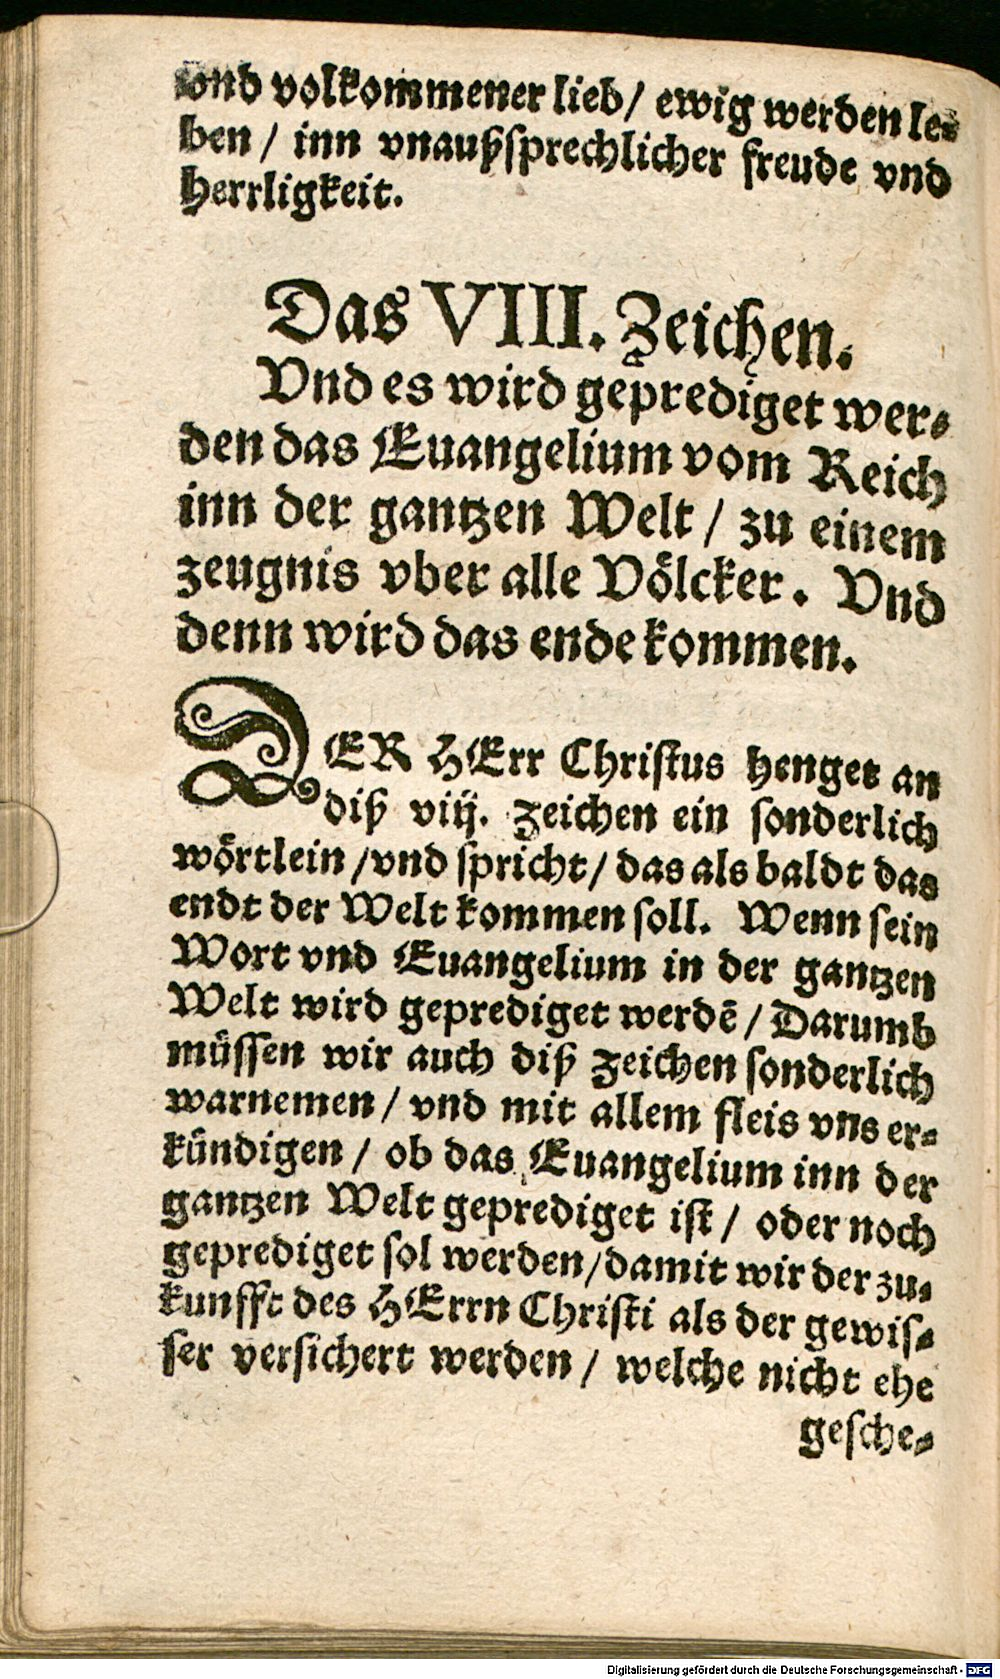 vnd volkommener lieb/ ewig werden le-
ben / inn vnaußsprechlicher freude vnd
herrligkeit.
Das VIII. Zeichen.
Vnd es wird geprediget wer-
den das Euangelium vom Reich
inn der gantzen Welt / zu einem
zeugnis vber alle Völcker. Vnd
denn wird das ende kommen.
DER HErr Christus henget an
diß viij. zeichen ein sonderlich
wörtlein /vnd spricht/ das als baldt das
endt der Welt kommen soll. Wenn sein
Wort vnd Euangelium in der gantzen
Welt wird geprediget werdē / Darumb
müssen wir auch diß zeichen sonderlich
warnemen / vnd mit allem fleis vns er-
kündigen / ob das Euangelium inn der
gantzen Welt geprediget ist / oder noch
geprediget sol werden/damit wir der zu-
kunfft des HErrn Christi als der gewis-
ser versichert werden / welche nicht ehe
gesche-
Digitalisierung gefördert durch die Deutsche Forschungsgemeinschaft - DFG